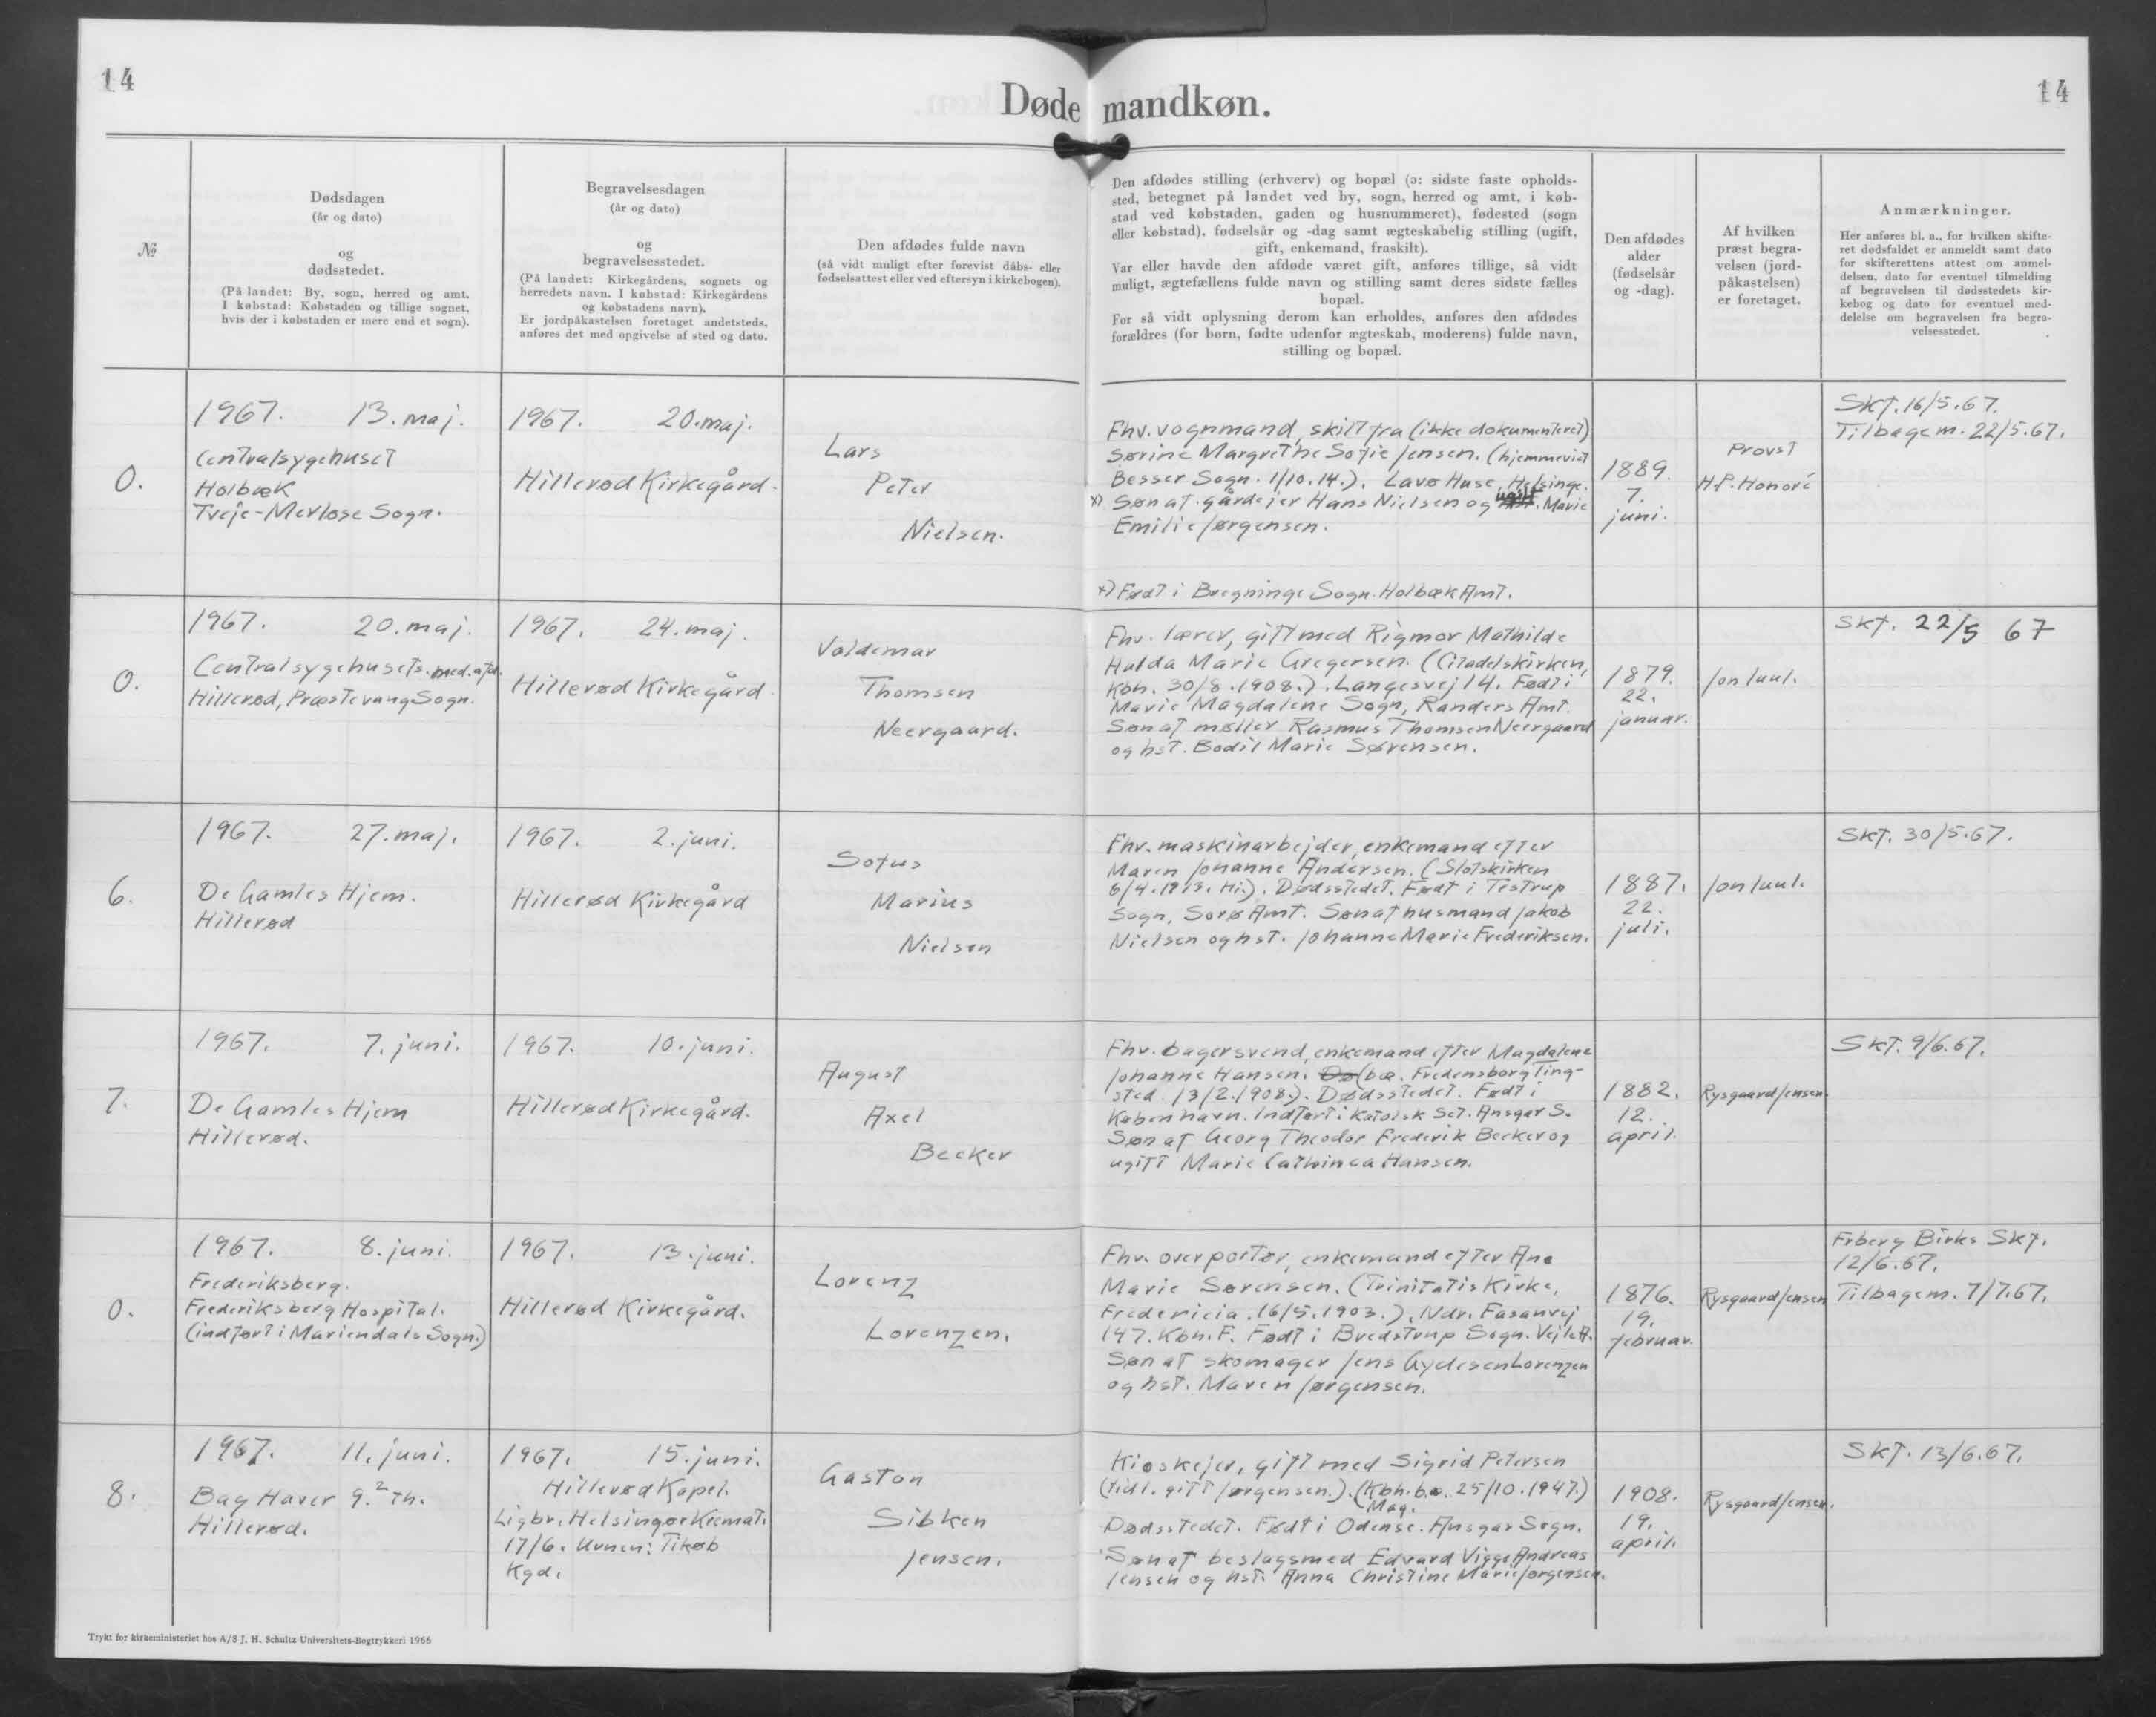 14
Døde mandkøn.
14
№
Dødsdagen
(år og dato)
og
dødsstedet.
(På landet: By, sogn, herred og amt.
I købstad: Købstaden og tillige sognet,
hvis der i købstaden er mere end et sogn).
Begravelsesdagen
(år og dato)
og
begravelsesstedet.
(På landet: Kirkegårdens, sognets og
herredets navn. I købstad: Kirkegårdens
og købstadens navn).
Er jordpåkastelsen foretaget andetsteds,
anføres det med opgivelse af sted og dato.
Den afdødes fulde navn
(så vidt muligt efter forevist dåbs- eller
fødselsattest eller ved eftersyn i kirkebogen).
Den afdødes stilling (erhverv) og bopæl (ɔ: sidste faste opholds-
sted, betegnet på landet ved by, sogn, herred og amt, i køb-
stad ved købstaden, gaden og husnummeret), fødested (sogn
eller købstad), fødselsår og -dag samt ægteskabelig stilling (ugift,
gift, enkemand, fraskilt).
Var eller havde den afdøde været gift, anføres tillige, så vidt
muligt, ægtefællens fulde navn og stilling samt deres sidste fælles
bopæl.
For så vidt oplysning derom kan erholdes, anføres den afdødes
forældres (for børn, fødte udenfor ægteskab, moderens) fulde navn,
stilling og bopæl.
Den afdødes
alder
(fødselsår
og -dag).
Af hvilken
præst begra-
velsen (jord-
påkastelsen)
er foretaget.
Anmærkninger.
Her anføres bl. a., for hvilken skifte-
ret dødsfaldet er anmeldt samt dato
for skifterettens attest om anmel-
delsen, dato for eventuel tilmelding
af begravelsen til dødsstedets kir-
kebog og dato for eventuel med-
delelse om begravelsen fra begra-
velsesstedet.
0.
1967. 13. maj.
Centralsygehuset
Holbæk
Tveje-Merløse Sogn.
1967. 20. maj.
Hillerød Kirkegård.
Lars
Peter
Nielsen.
Fhv. vognmand, skilt fra (ikke dokumenteret)
Sørine Margrethe Sofie Jensen. (hjemmeviet
Besser Sogn. 1/10.14.). Lavø Huse, Helsinge.
x) Søn af gårdejer Hans Nielsen og ugift Marie
Emilie Jørgensen.
x) Født i Bregninge Sogn. Holbæk Amt.
1889.
7.
juni.
Provst
H.P. Honoré
Skf. 16/5.67.
Tilbagem. 22/5.67.
0.
1967. 20. maj.
Centralsygehusets. med. afd.
Hillerød, Præstevang Sogn.
1967. 24. maj.
Hillerød Kirkegård.
Valdemar
Thomsen
Neergaard.
Fhv. lærer, gift med Rigmor Mathilde
Hulda Marie Gregersen. (Citadelskirken,
Kbh. 30/8.1908.). Langesvej 14. Født i
Marie Magdalene Sogn, Randers Amt.
Søn af møller Rasmus Thomsen Neergaard
og hst. Bodil Marie Sørensen.
1879.
22.
januar.
Jon Juul.
Skf. 22/5 67
6.
1967. 27. maj.
De Gamles Hjem.
Hillerød
1967. 2. juni.
Hillerød Kirkegård
Sofus
Marius
Nielsen
Fhv. maskinarbejder, enkemand efter
Maren Johanne Andersen. (Slotskirken
6/4.1913. Hi.). Dødsstedet. Født i Testrup
Sogn, Sorø Amt. Søn af husmand Jakob
Nielsen og hst. Johanne Marie Frederiksen.
1887.
22.
juli.
Jon Juul.
Skf. 30/5.67.
7.
1967. 7. juni.
De Gamles Hjem
Hillerød.
1967. 10. juni.
Hillerød Kirkegård.
August
Axel
Becker
Fhv. bagersvend, enkemand efter Magdalene
Johanne Hansen. Dø (b.æ. Fredensborg Ting-
sted. 13/2.1908.). Dødsstedet. Født i
København. Indført i Katolsk Sct. Ansgar S.
Søn af Georg Theodor Frederik Becker og
ugift Marie Cathinca Hansen.
1882.
12.
april.
Rysgaard Jensen.
Skf. 9/6.67.
0.
1967. 8. juni.
Frederiksberg.
Frederiksberg Hospital.
(indført i Mariendals Sogn.)
1967. 13. juni.
Hillerød Kirkegård.
Lorenz
Lorenzen.
Fhv. overportør, enkemand efter Ane
Marie Sørensen. (Trinitatis Kirke,
Fredericia. 16/5.1903.). Ndr. Fasanvej
147. Kbh. F. Født i Bredstrup Sogn. Vejle A.
Søn af skomager Jens Gydesen Lorenzen
og hst. Maren Jørgensen.
1876.
19.
februar.
Rysgaard Jensen
Frberg Birks Skf.
12/6.67.
Tilbagem. 7/7.67.
8.
1967. 11. juni.
Bag Haver 9.² th.
Hillerød.
1967. 15. juni.
Hillerød Kapel.
Ligbr. Helsingør Kremat.
17/6. Urnen: Tikøb
Kgd.
Gaston
Sibken
Jensen.
Kioskejer, gift med Sigrid Petersen
(tidl. gift Jørgensen.). (Kbh. b.æ. 25/10.1947.)
Mag.
Dødsstedet. Født i Odense. Ansgar Sogn.
Søn af beslagsmed Edvard Viggo Andreas
Jensen og hst. Anna Christine Marie Jørgensen.
1908.
19.
april.
Rysgaard Jensen.
Skf. 13/6.67.
Trykt for kirkeministeriet hos A/S J. H. Schultz Universitets-Bogtrykkeri 1966